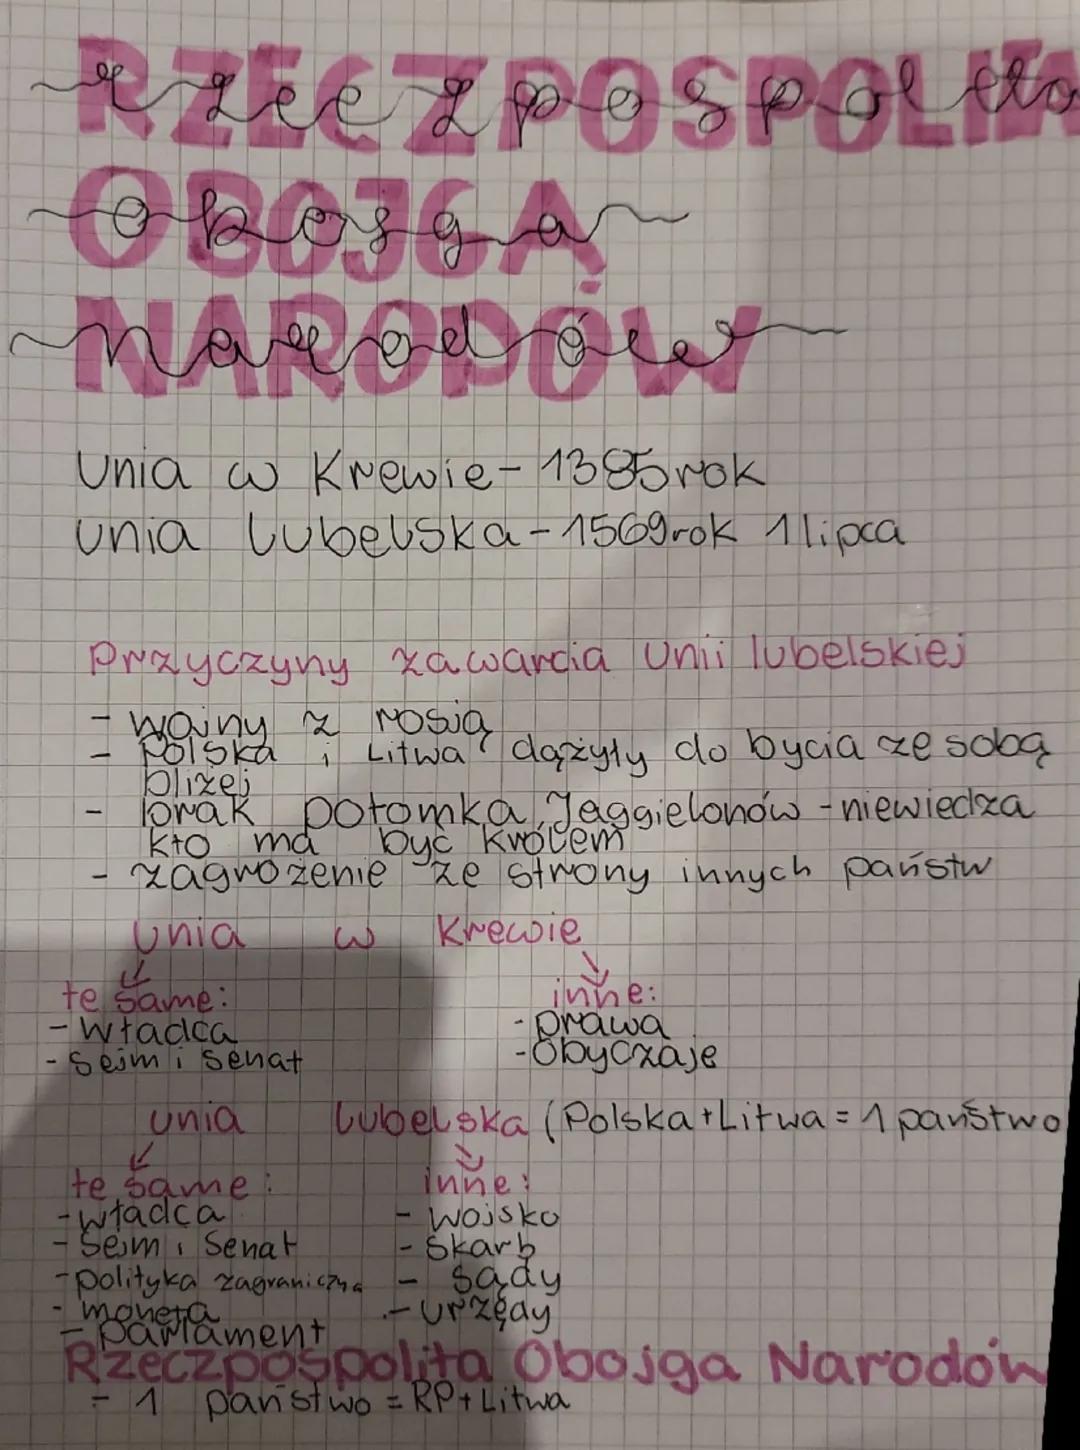 RZECZPOSPOLITA
rzeczpospolita
OBOJGA
obojga
NARODÓW
narodów
Unia w Krewie - 1385 rok
Unia Lubelska - 1569 rok 1 lipca
Przyczyny zawarcia Unii lubelskiej
- wojny z rosją
- Polska i Litwa dążyły do bycia ze sobą
bliżej
- brak potomka Jaggielonów - niewiedza
kto ma być królem
- zagrożenie ze strony innych państw
Unia w Krewie
te same:
- władca
- Sejm i Senat
inne:
- prawa
- Obyczaje
Unia Lubelska (Polska + Litwa = 1 państwo
te same:
- władca
- Sejm i Senat
- polityka zagraniczna
- moneta
- parlament
inne:
- wojsko
- Skarb
- sądy
- urzędy
Rzeczpospolita Obojga Narodów
= 1 państwo = RP + Litwa